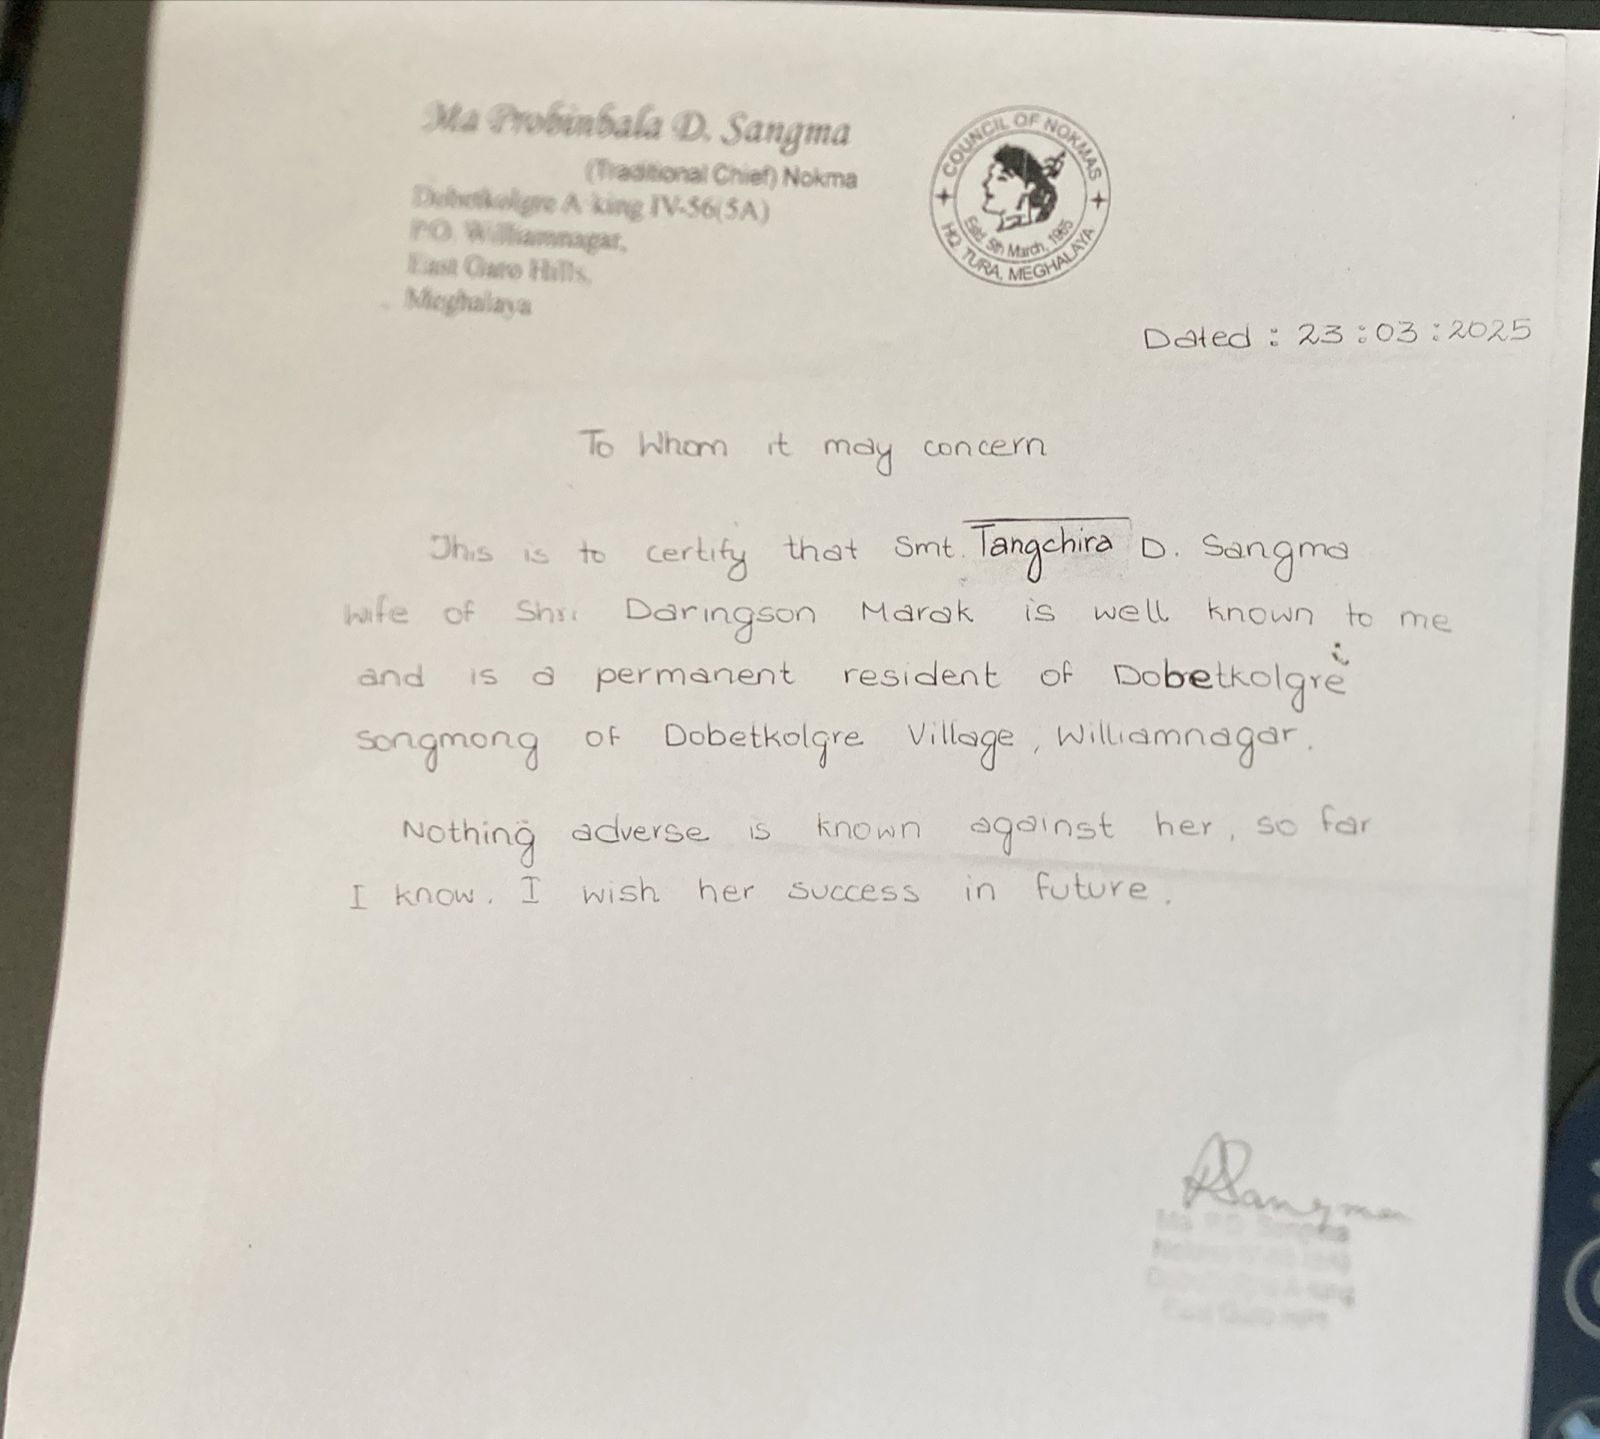 Ma Probinbala D. Sangma
(Traditional Chief) Nokma
Dobetkolgre A·king IV-56(5A)
P.O. Williamnagar,
East Garo Hills,
Meghalaya
COUNCIL OF NOKMAS
Estd. 5th March, 1965
HQ. TURA, MEGHALAYA
Dated : 23 : 03 : 2025
To Whom it may concern
This is to certify that Smt. Tangchira D. Sangma
wife of Shri Daringson Marak is well known to me
and is a permanent resident of Dobetkolgre
songmong of Dobetkolgre Village, Williamnagar.
Nothing adverse is known against her, so far
I know. I wish her success in future.
Sangma